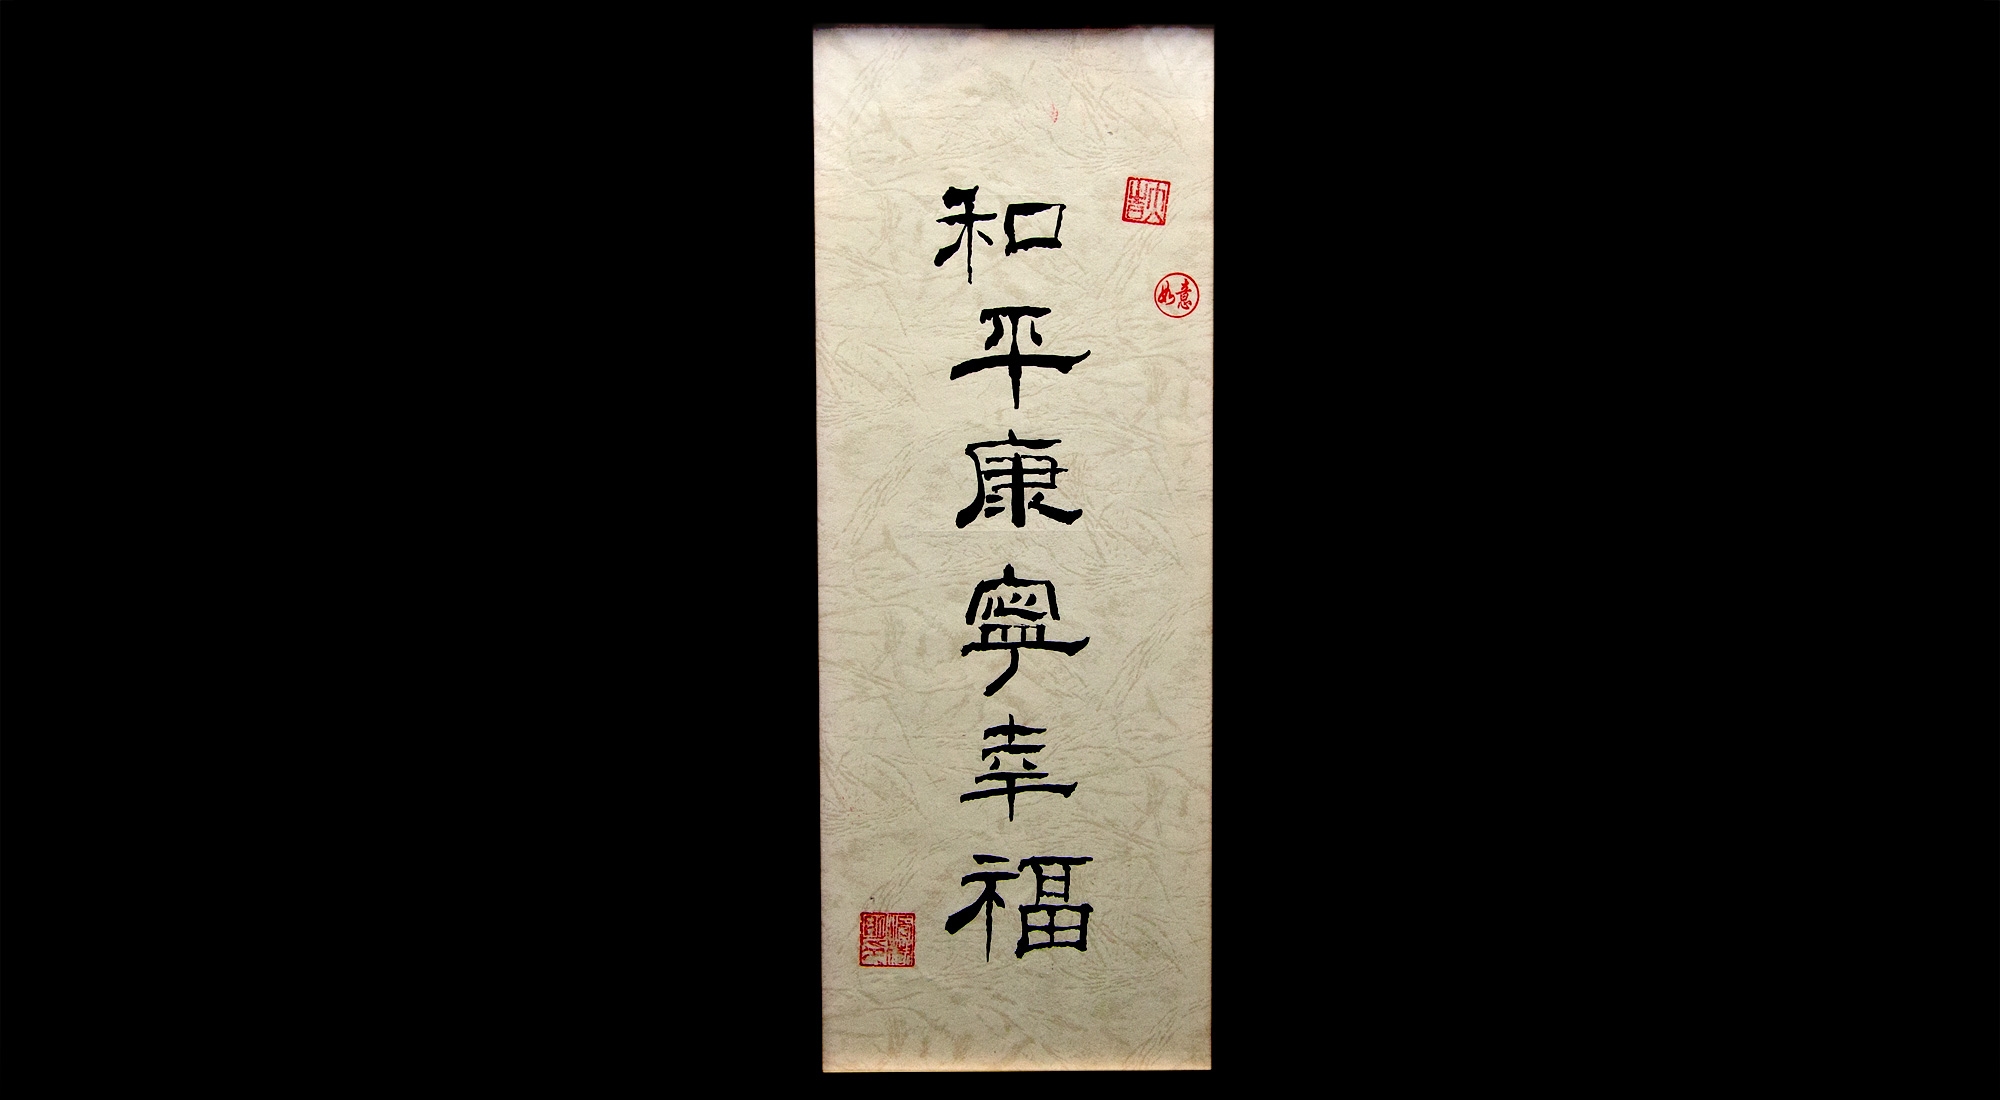 和平康寧幸福
如意